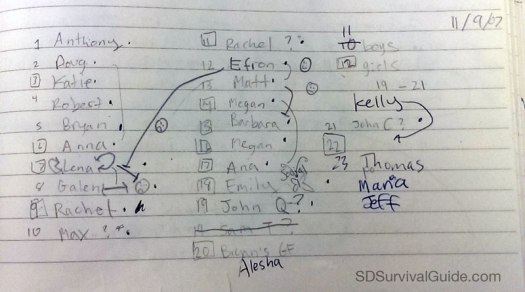 11/9/07
1 Anthony.
2 Doug.
3 Katie.
4 Robert.
5 Bryan.
6 Anna.
7 Elena
8 Galen
9 Rachel.
10 Max ?
11 Rachel ?
12 Efron
13 Matt
14 Megan
15 Barbara
16 Megan
17 Ana
18 Emily
19 John Q-?
19 Sam T?
20 Bryan's GF
Alesha
11
10 boys
12 girls
19 - 21
Kelly
21 John C?
22
23 Thomas
Maria
Jeff
SDSurvivalGuide.com